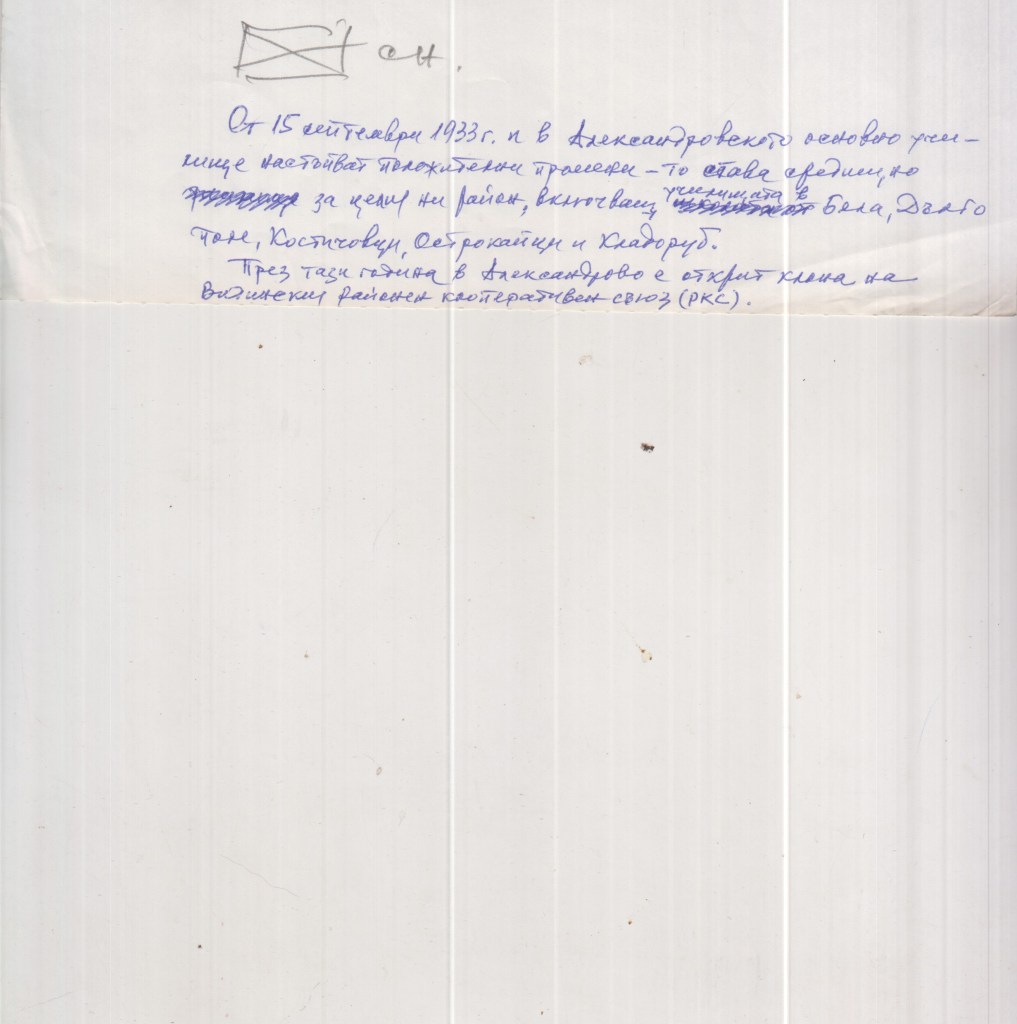 сн.
От 15 септември 1933 г. и в Александровското основно учи-
лище настъпват положителни промени – то става средищно
за целия ни район, включващ училищата в Бела, Дълго
поле, Костичовци, Острокапци и Хладоруб.
През тази година в Александрово е открит клона на
Видинския районен кооперативен съюз (РКС).